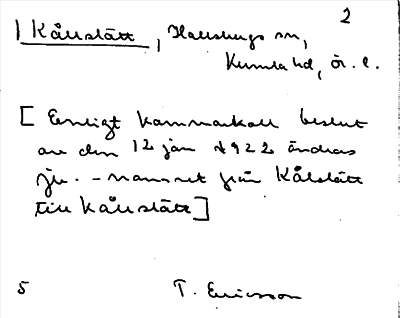 2
Kånstätt, Hallsbergs sn,
Kumla hd, Ör. l.
[Enligt Kammarkoll beslut
av den 12 jan 1922 ändras
jb. -namnet från Kålstätt
till Kånstätt]
5 T. Ericsson